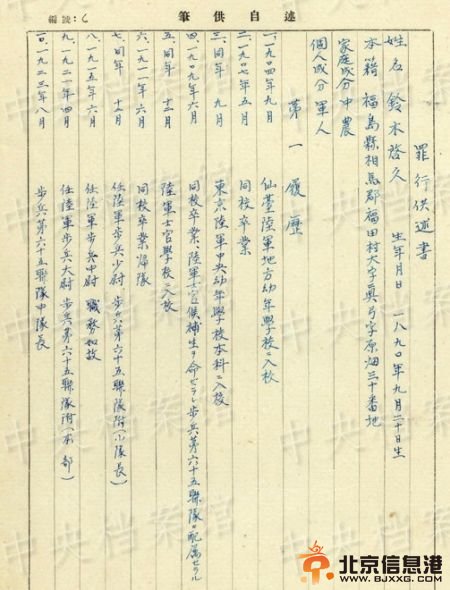 編號：6
述自供筆
罪行供述書
姓名 鈴木啓久 生年月日 一八九〇年九月二十日生
本籍 福島縣相馬郡福田村大字真弓字原畑三十番地
家庭成分 中農
個人成分 軍人
第一 履歷
一、一九〇四年九月 仙臺陸軍地方幼年學校ニ入校
二、一九〇七年五月 同校卒業
三、同年 九月 東京陸軍中央幼年學校本科ニ入校
四、一九〇九年六月 同校卒業、陸軍士官候補生ヲ命ゼラレ步兵第六十五聯隊ニ配屬セラル
五、同年 十二月 陸軍士官學校ニ入校
六、一九一一年 六月 同校卒業歸隊
七、同年 十二月 任陸軍步兵少尉 步兵第六十五聯隊附(小隊長)
八、一九一五年 六月 任陸軍步兵中尉 職務如故
九、一九二一年 四月 任陸軍步兵大尉 步兵第六十五聯隊附(本部)
一〇、一九二三年 八月 步兵第六十五聯隊中隊長
中央档案館
北京信息港
WWW.BJXXG.COM